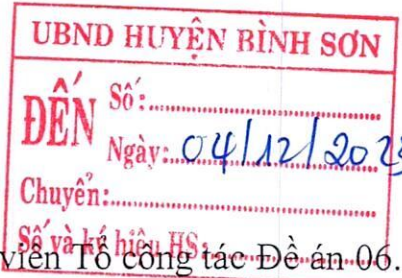 UBND HUYỆN BÌNH SƠN
ĐẾN
Số:
Ngày: 04/12/2023
Chuyển:
Số và ký hiệu HS:
viên Tổ công tác Đề án 06.